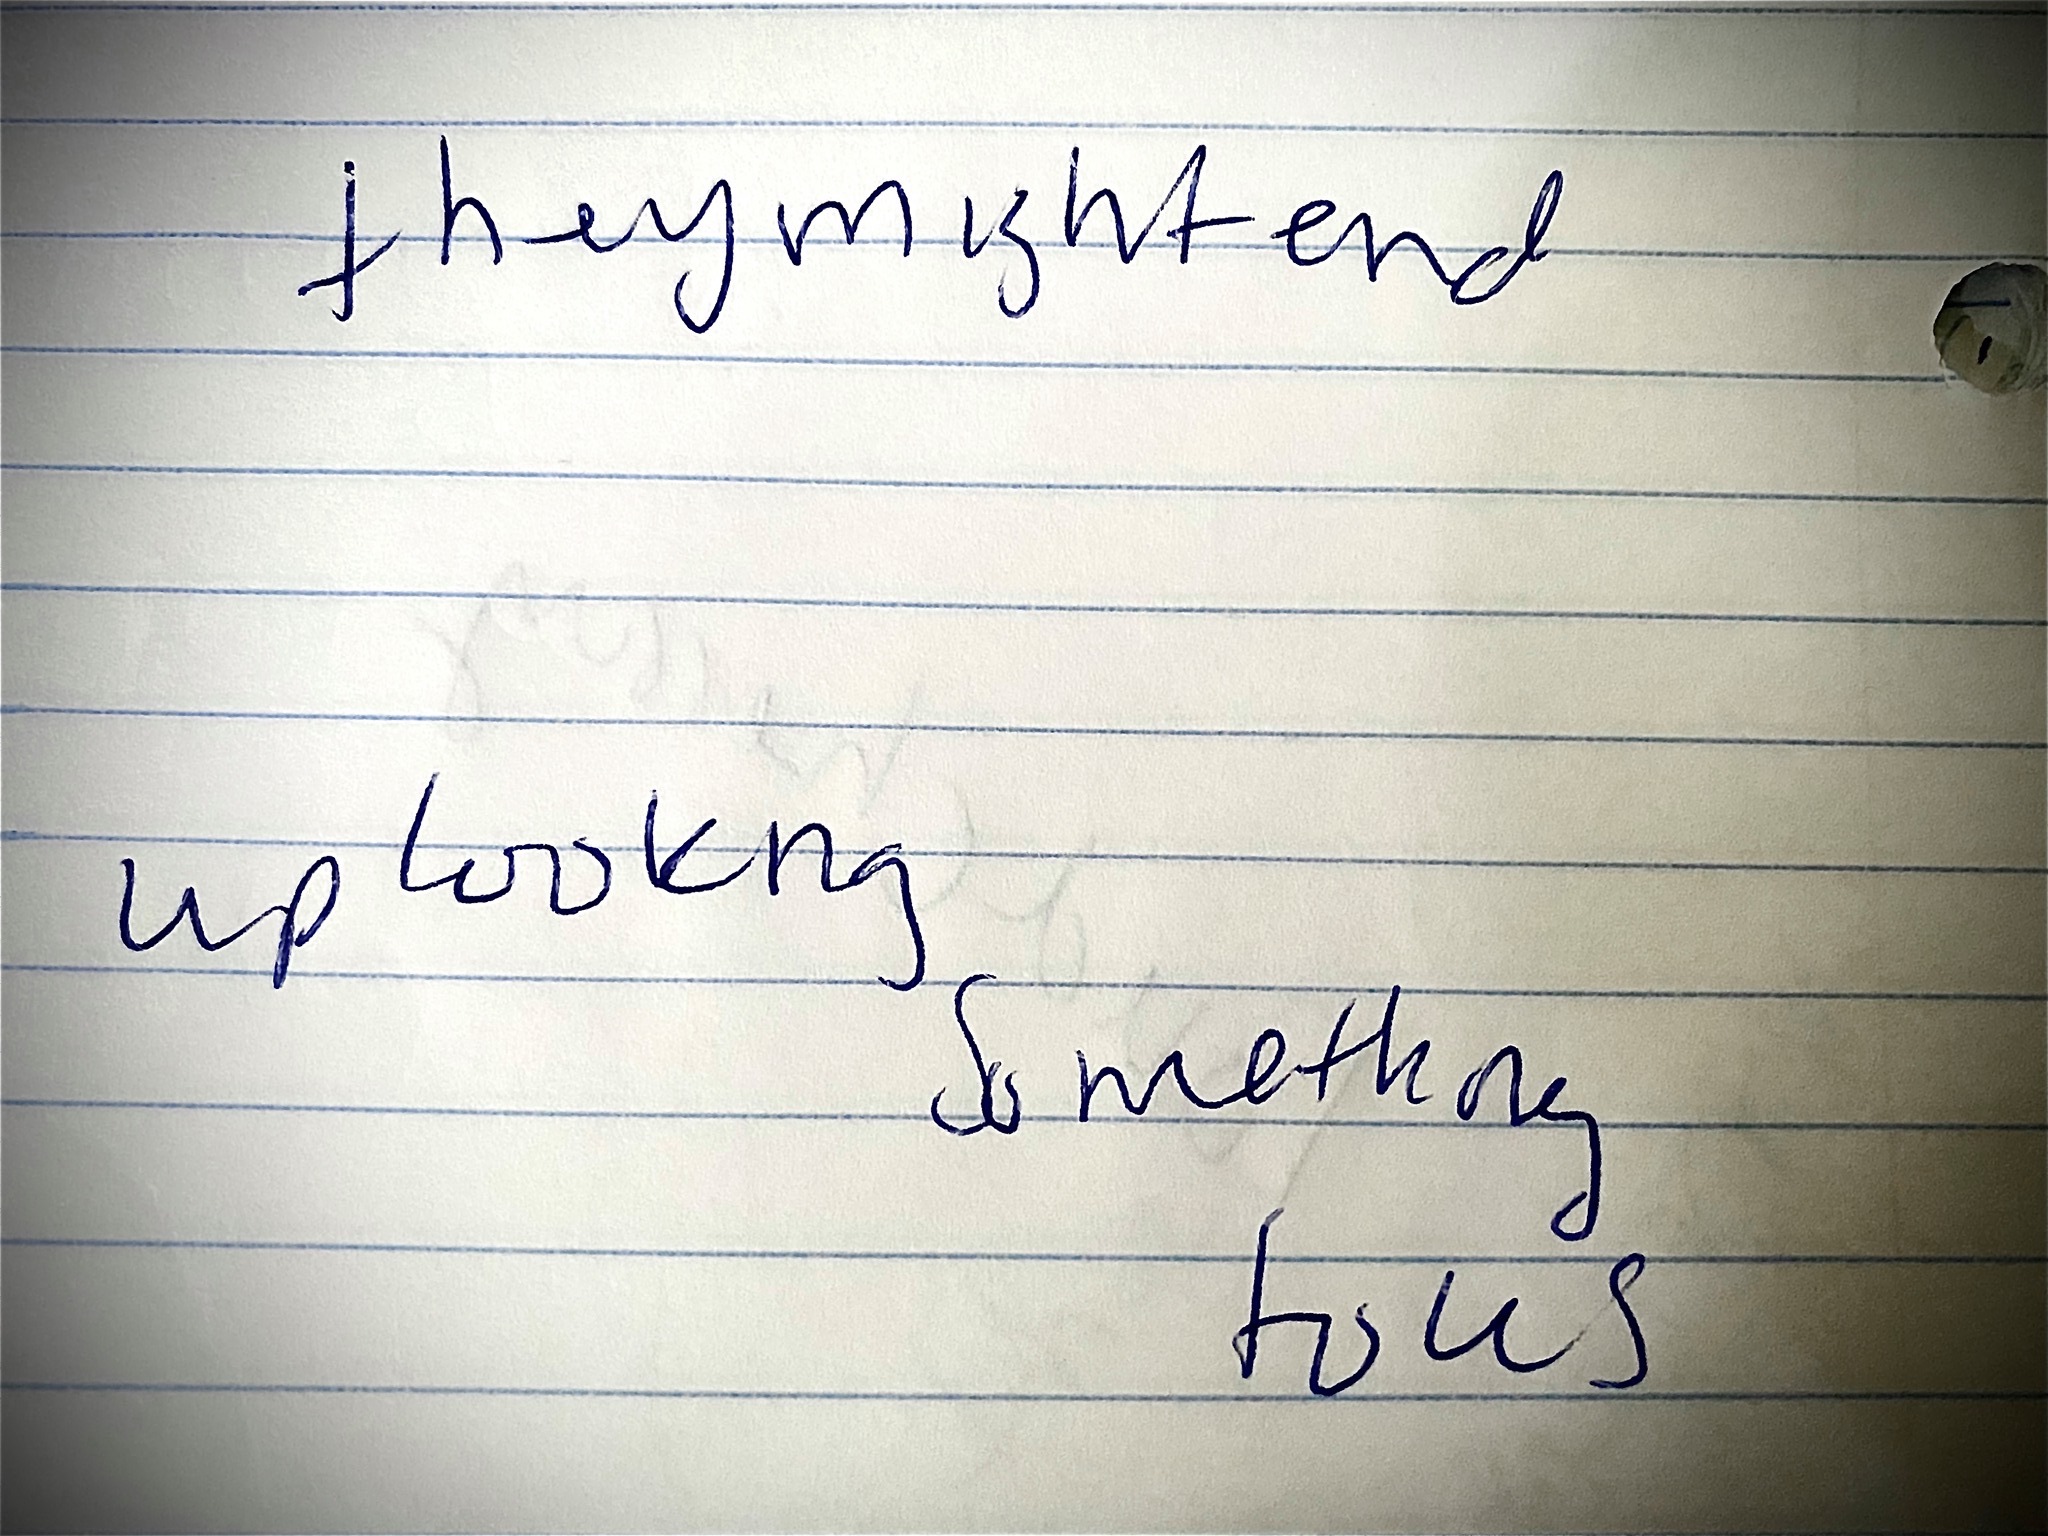 they might end
up looking
something
to us